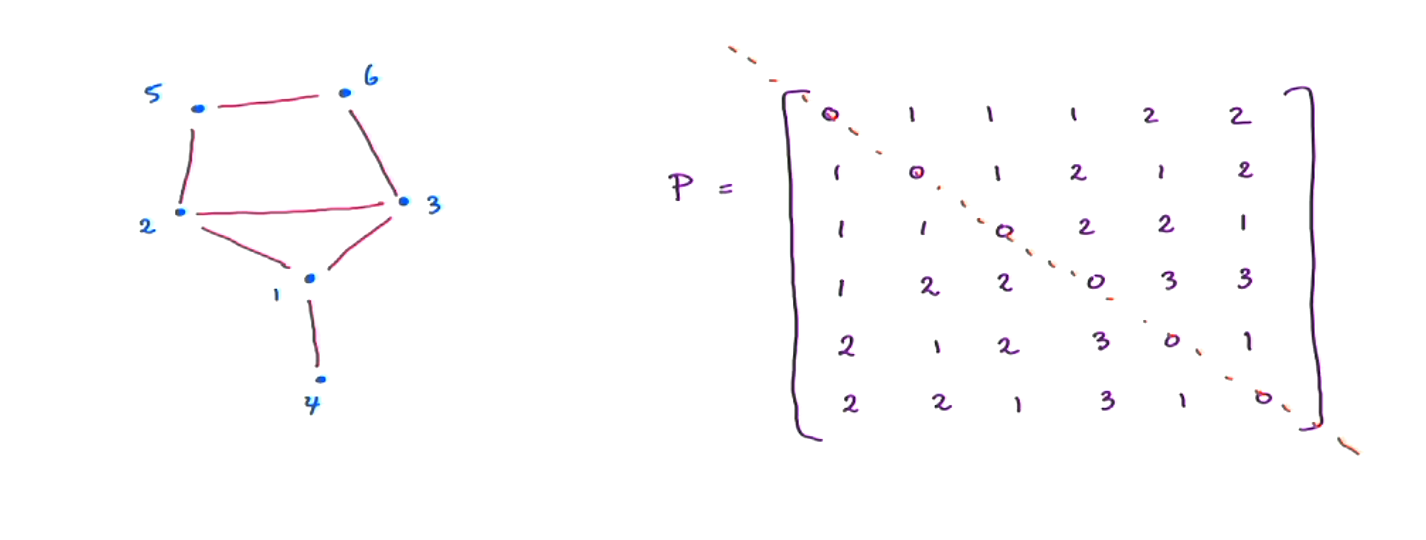 5 6
2 3
1
4
P =
0 1 1 1 2 2
1 0 1 2 1 2
1 1 0 2 2 1
1 2 2 0 3 3
2 1 2 3 0 1
2 2 1 3 1 0